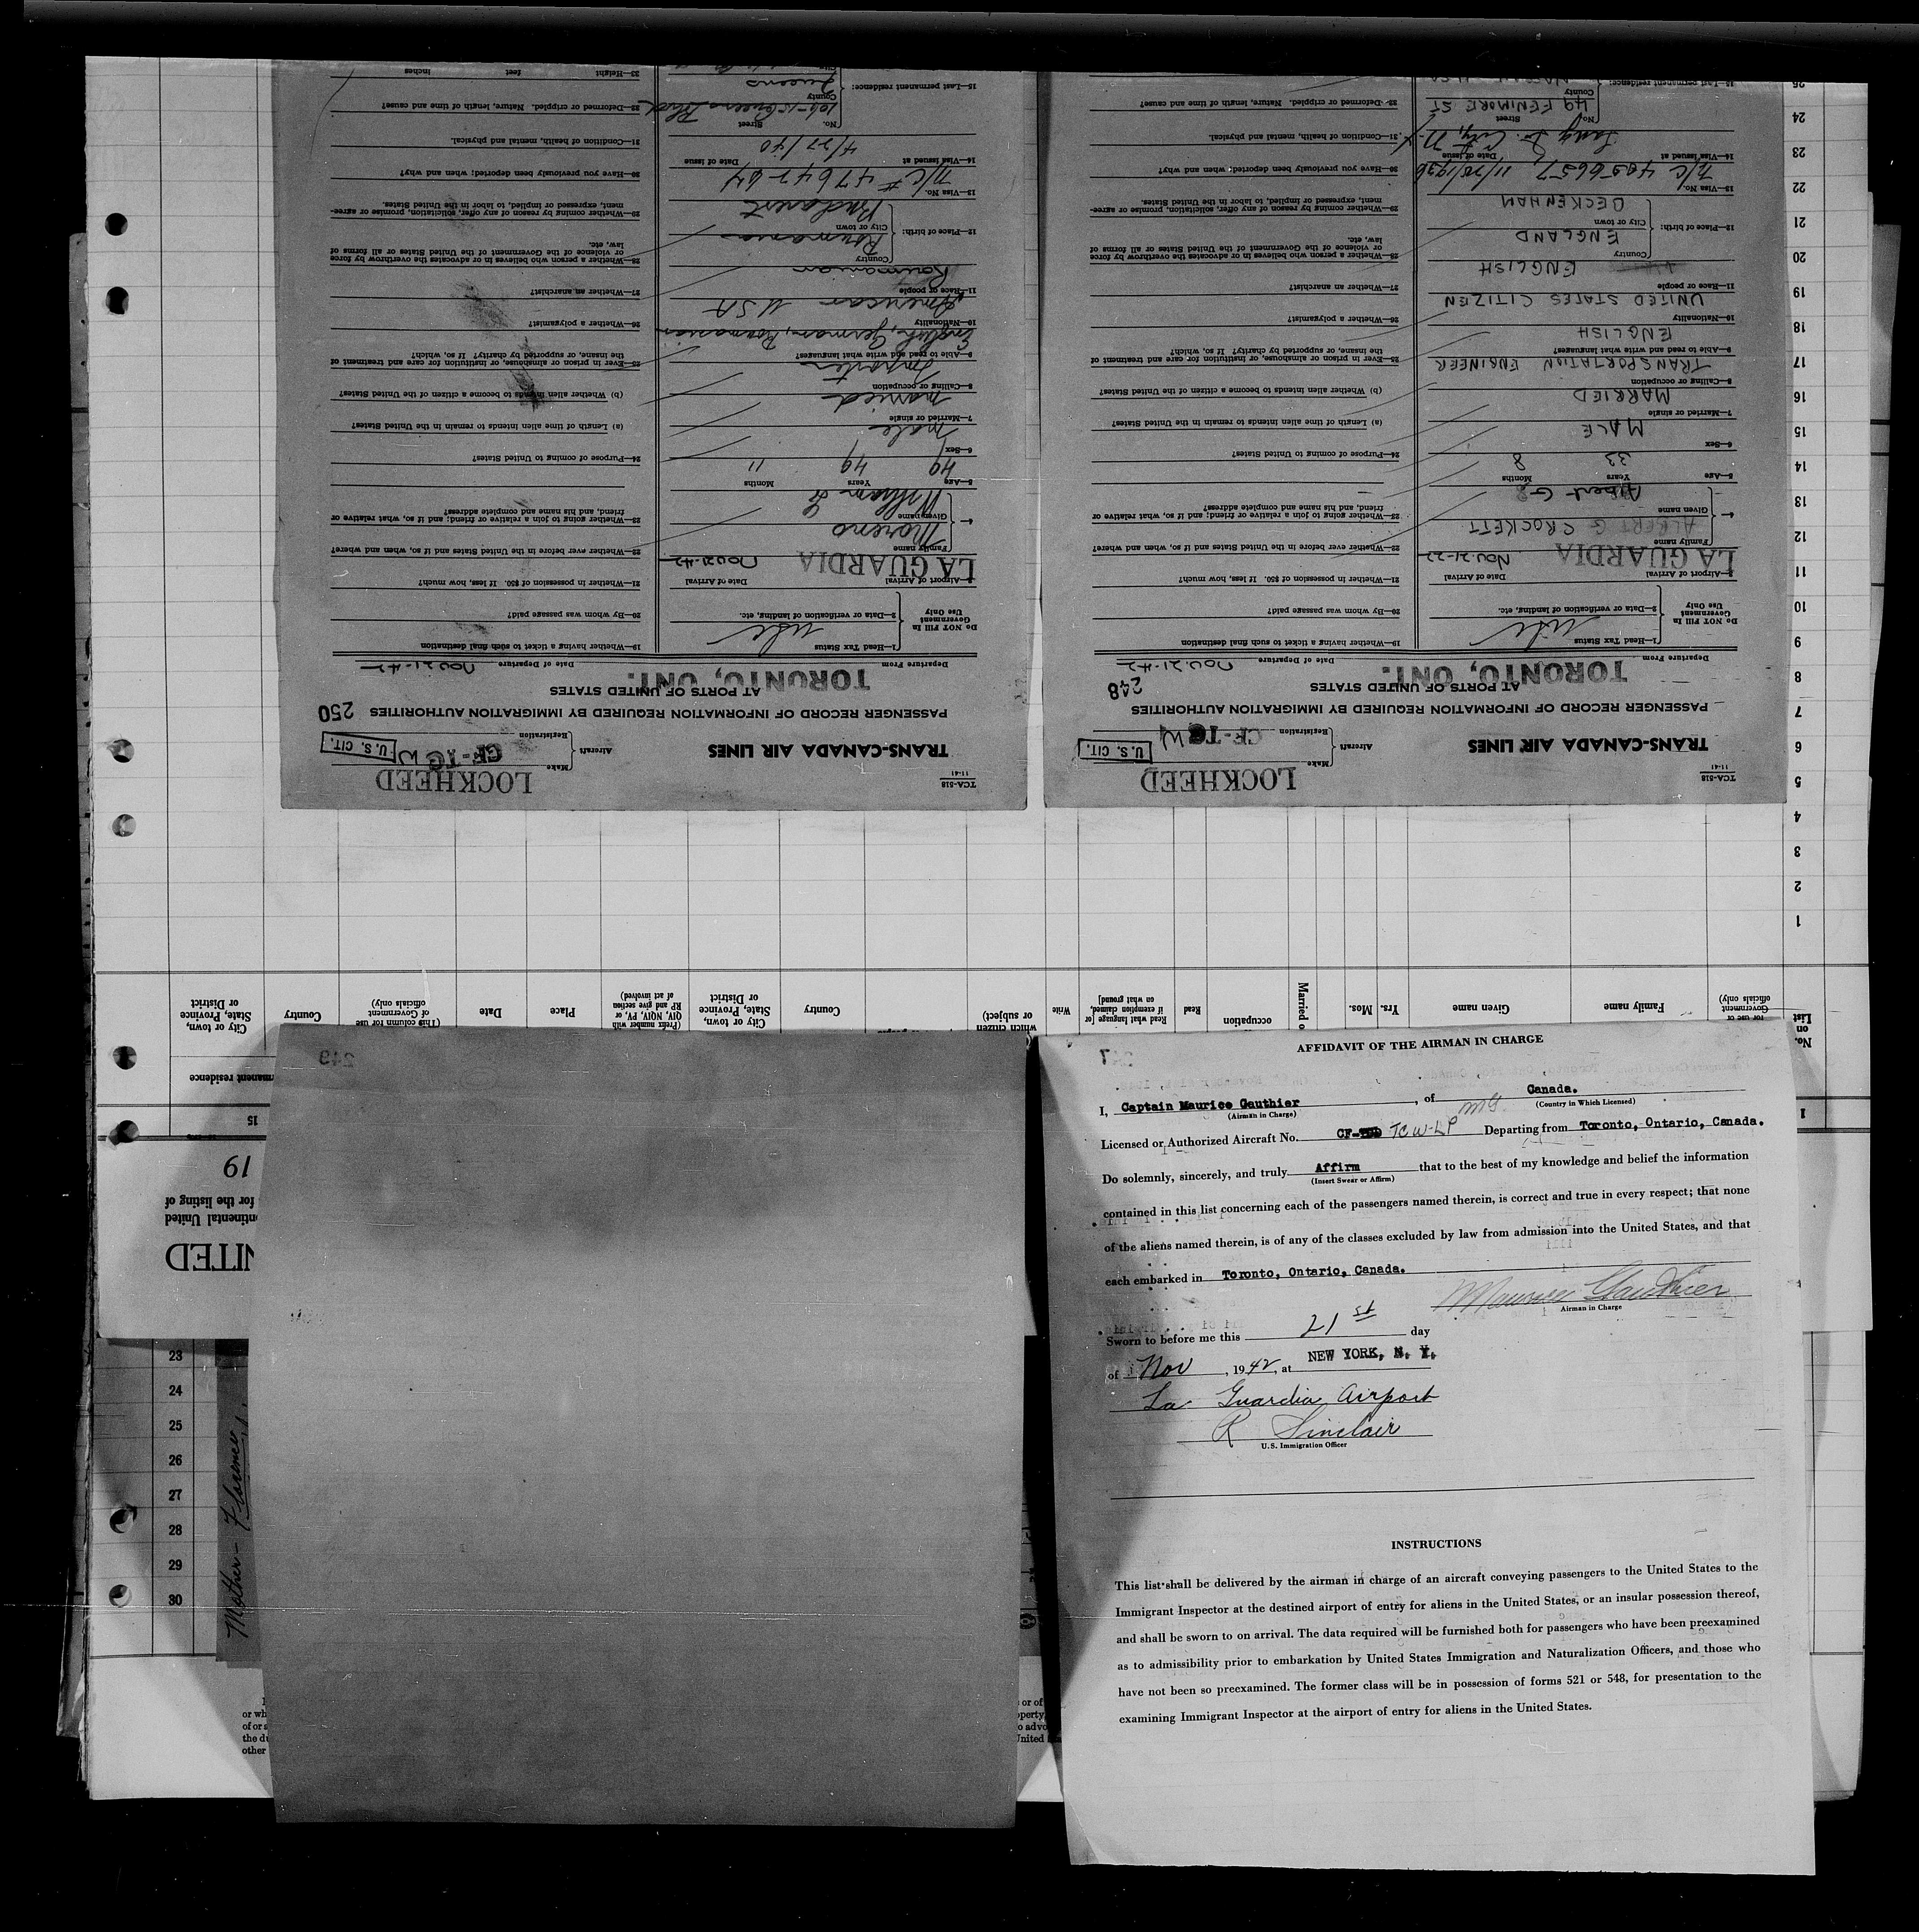 AFFIDAVIT OF THE AIRMAN IN CHARGE
I, Captain Maurice Gauthier, of Canada.
(Airman in Charge) (Country in Which Licensed)
Licensed or Authorized Aircraft No. CF- TCW-LP Departing from Toronto, Ontario, Canada.
Do solemnly, sincerely, and truly Affirm that to the best of my knowledge and belief the information
(Insert Swear or Affirm)
contained in this list concerning each of the passengers named therein, is correct and true in every respect; that none
of the aliens named therein, is of any of the classes excluded by law from admission into the United States, and that
each embarked in Toronto, Ontario, Canada.
Maurice Gauthier
Airman in Charge
Sworn to before me this 21st day
of Nov, 1942, at NEW YORK, N. Y.
La Guardia Airport
R Sinclair
U.S. Immigration Officer
INSTRUCTIONS
This list shall be delivered by the airman in charge of an aircraft conveying passengers to the United States to the
Immigrant Inspector at the destined airport of entry for aliens in the United States, or an insular possession thereof,
and shall be sworn to on arrival. The data required will be furnished both for passengers who have been preexamined
as to admissibility prior to embarkation by United States Immigration and Naturalization Officers, and those who
have not been so preexamined. The former class will be in possession of forms 521 or 548, for presentation to the
examining Immigrant Inspector at the airport of entry for aliens in the United States.
TCA-518
11-41
LOCKHEED
TRANS-CANADA AIR LINES
Aircraft Make Registration CF-TCW
U. S. CIT.
PASSENGER RECORD OF INFORMATION REQUIRED BY IMMIGRATION AUTHORITIES
AT PORTS OF UNITED STATES
248
TORONTO, ONT.
Departure From Date of Departure Nov. 21-42
Do NOT Fill In Government Use Only
1—Head Tax Status
2—Data or verification of landing, etc.
3—Airport of Arrival LA GUARDIA Date of Arrival
4— Family name ALBERT G CROCKETT
Given name Albert G
5—Age Years 33 Months 8
6—Sex MALE
7—Married or single MARRIED
8—Calling or occupation TRANSPORTATION ENGINEER
9—Able to read and write what languages? ENGLISH
10—Nationality UNITED STATES CITIZEN
11—Race or people ENGLISH
12—Place of birth: Country ENGLAND
City or town
13—Visa No. N/C 4056657
14—Visa issued at Date of issue 11/25/1936
15—Last permanent residence: No. Street 49 FENIMORE ST
County
19—Whether having a ticket to such final destination
20—By whom was passage paid?
21—Whether in possession of $50. If less, how much?
22—Whether ever before in the United States and if so, when and where?
23—Whether going to join a relative or friend; and if so, what relative or
friend, and his name and complete address?
24—Purpose of coming to United States?
(a) Length of time alien intends to remain in the United States?
(b) Whether alien intends to become a citizen of the United States?
25—Ever in prison or almshouse, or institution for care and treatment of
the insane, or supported by charity? If so, which?
26—Whether a polygamist?
27—Whether an anarchist?
28—Whether a person who believes in or advocates the overthrow by force
or violence of the Government of the United States or all forms of
law, etc.
29—Whether coming by reason of any offer, solicitation, promise or agree-
ment, expressed or implied, to labor in the United States.
30—Have you previously been deported; when and why?
31—Condition of health, mental and physical.
32—Deformed or crippled. Nature, length of time and cause?
TCA-518
11-41
LOCKHEED
TRANS-CANADA AIR LINES
Aircraft Make Registration CF-TCW
U. S. CIT.
PASSENGER RECORD OF INFORMATION REQUIRED BY IMMIGRATION AUTHORITIES
250
AT PORTS OF UNITED STATES
TORONTO, ONT.
Departure From Date of Departure Nov. 21-42
Do NOT Fill In Government Use Only
1—Head Tax Status
2—Data or verification of landing, etc.
3—Airport of Arrival LA GUARDIA Date of Arrival Nov 21-42
4— Family name Moreno
Given name William
5—Age 49 Years 49 Months 11
6—Sex male
7—Married or single married
8—Calling or occupation Importer
9—Able to read and write what languages? English, German, Roumanian
10—Nationality American USA
11—Race or people Roumanian
12—Place of birth: Country Roumania
City or town Bucharest
13—Visa No. N/C #
14—Visa issued at Date of issue 4/27/40
15—Last permanent residence: No. Street Queens Blvd
County Queens
19—Whether having a ticket to such final destination
20—By whom was passage paid?
21—Whether in possession of $50. If less, how much?
22—Whether ever before in the United States and if so, when and where?
23—Whether going to join a relative or friend; and if so, what relative or
friend, and his name and complete address?
24—Purpose of coming to United States?
(a) Length of time alien intends to remain in the United States?
(b) Whether alien intends to become a citizen of the United States?
25—Ever in prison or almshouse, or institution for care and treatment of
the insane, or supported by charity? If so, which?
26—Whether a polygamist?
27—Whether an anarchist?
28—Whether a person who believes in or advocates the overthrow by force
or violence of the Government of the United States or all forms of
law, etc.
29—Whether coming by reason of any offer, solicitation, promise or agree-
ment, expressed or implied, to labor in the United States.
30—Have you previously been deported; when and why?
31—Condition of health, mental and physical.
32—Deformed or crippled. Nature, length of time and cause?
33—Height feet inches
No. on List
Family name
Given name
Yrs. Mos.
occupation
Read
Read what language [or if exemption claimed, on what ground]
Write
Country
City or town, State, Province or District
Place
Date
(This column for use of Government officials only)
Country
City or town, State, Province or District
15
1
2
3
4
5
6
7
8
9
10
11
12
13
14
15
16
17
18
19
20
21
22
23
24
23
24
25
26
27
28
29
30
Mother - Florence